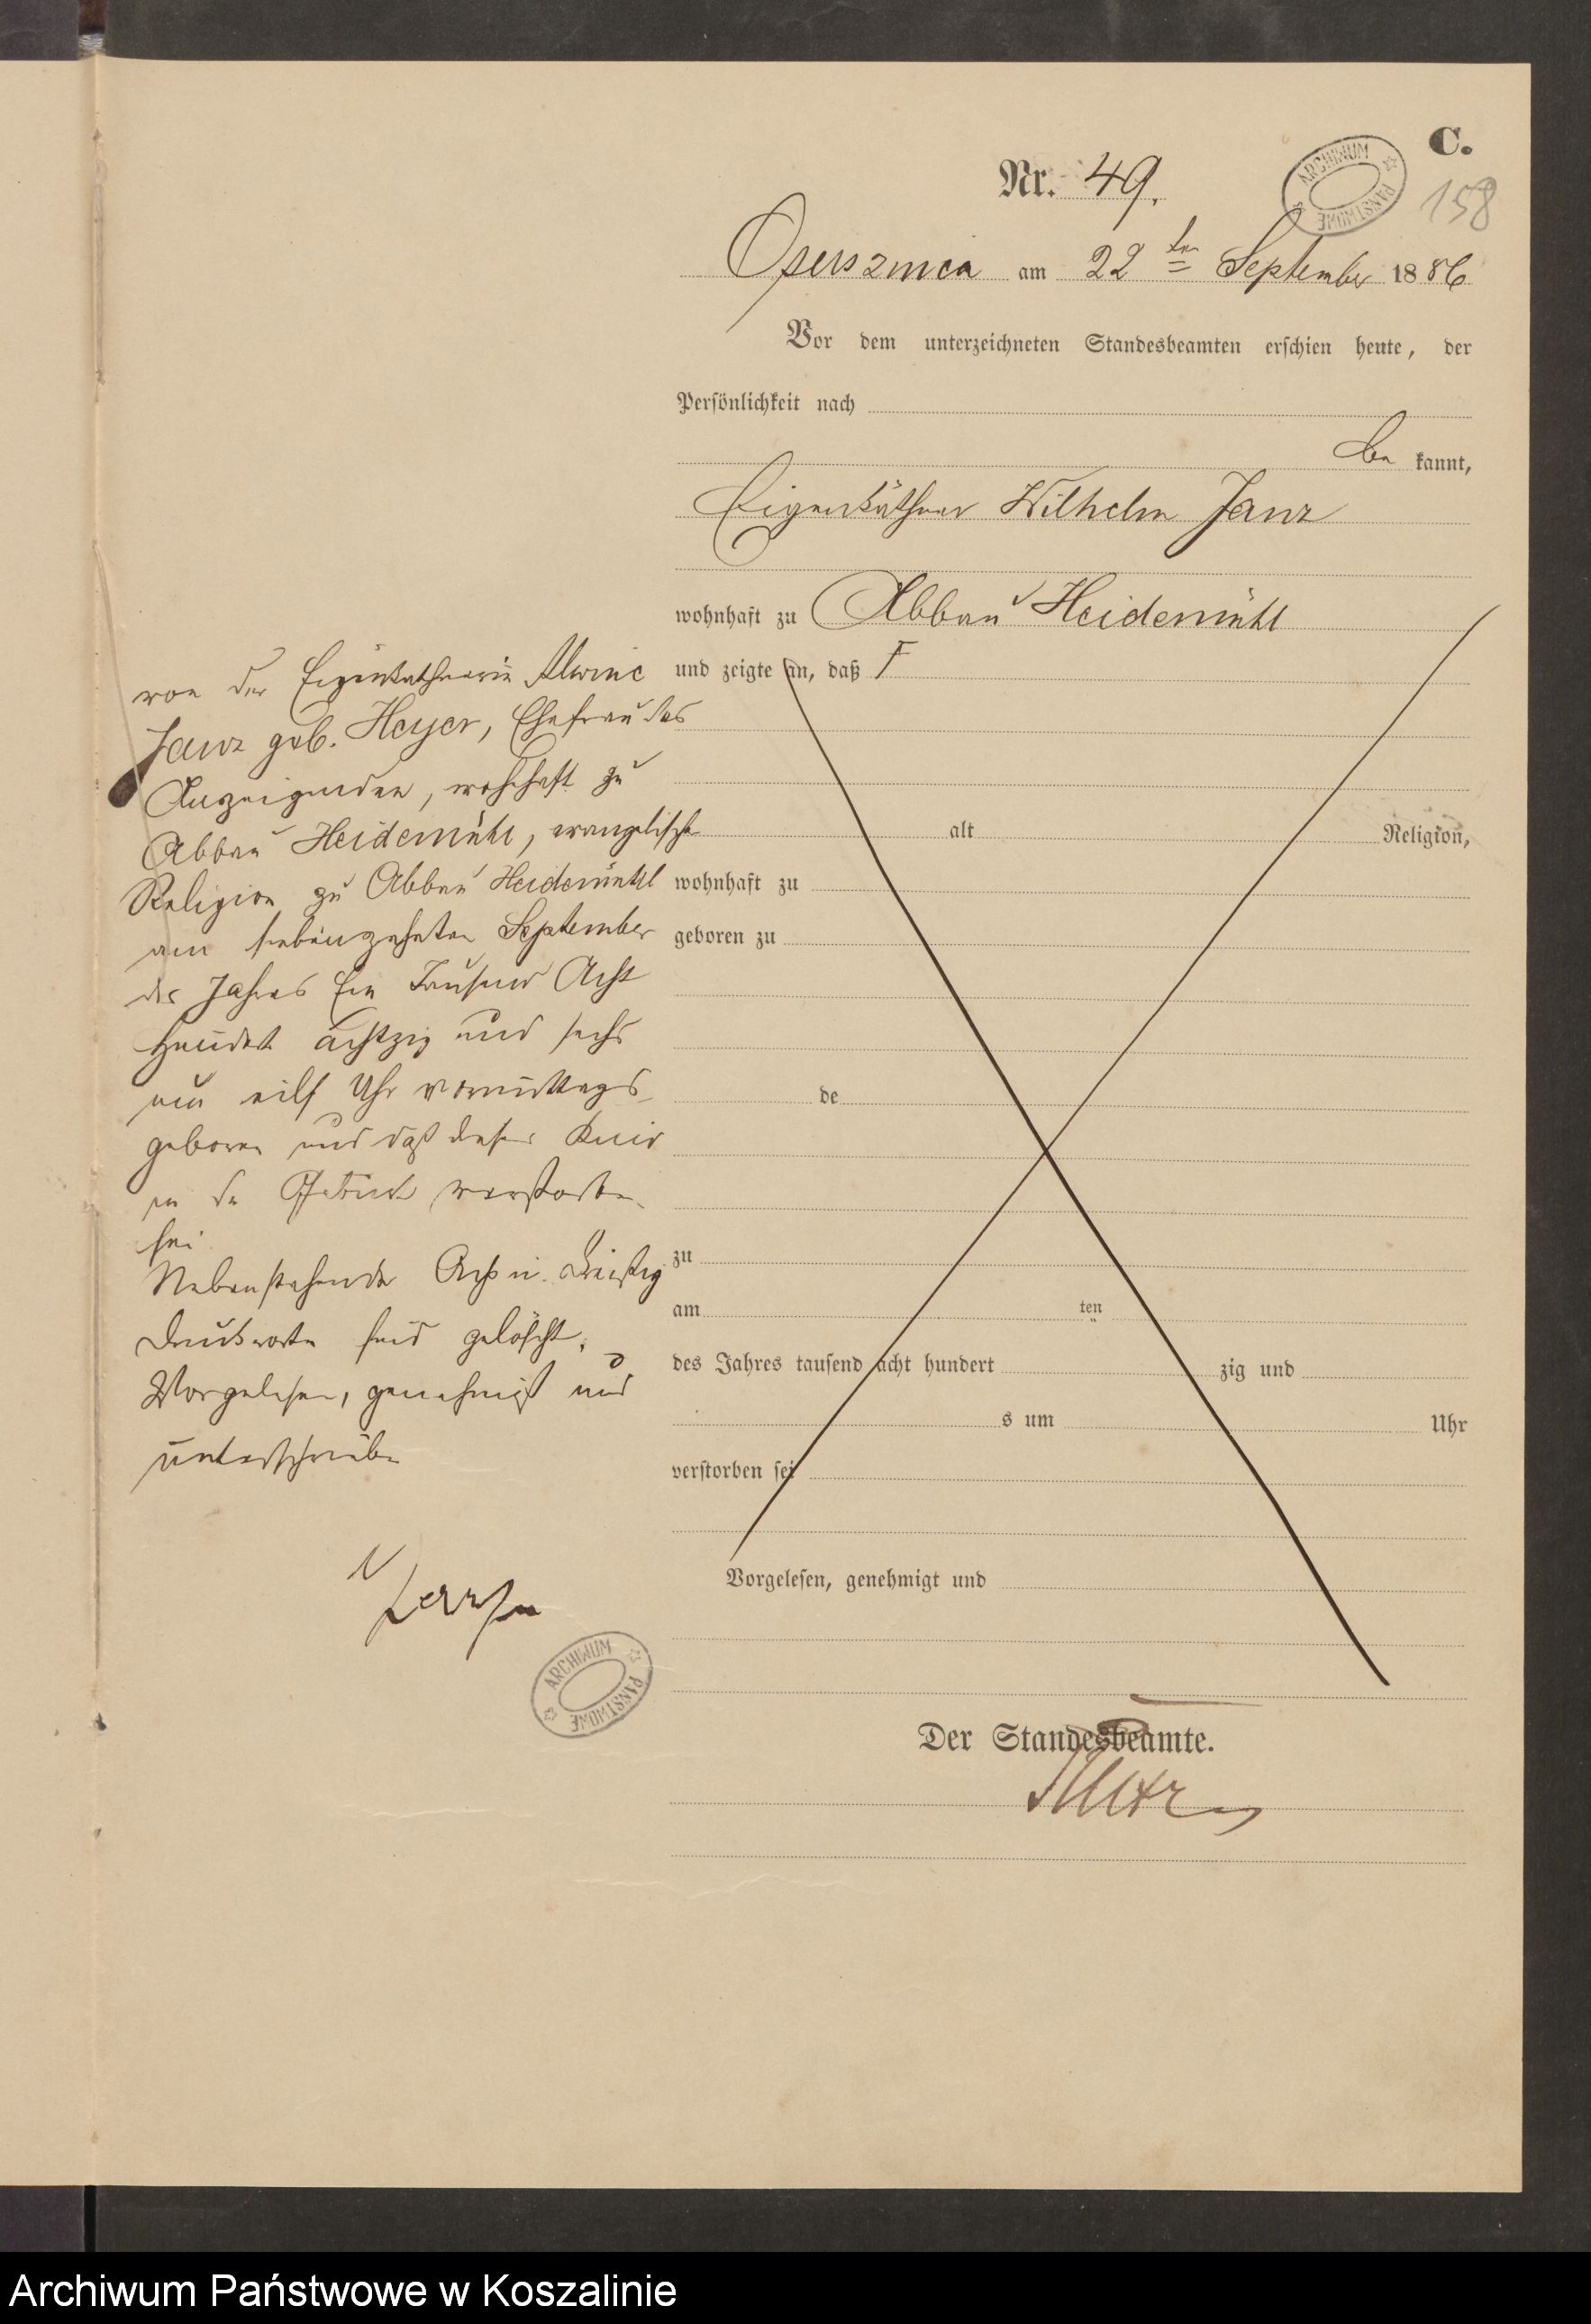 C.
Nr. 49.
ARCHIWUM PAŃSTWOWE
158
Osusznica am 22ten September 1886
Vor dem unterzeichneten Standesbeamten erschien heute, der
Persönlichkeit nach
be kannt,
Eigenkäthner Wilhelm Janz
wohnhaft zu Abbau Heidemühl
und zeigte an, daß
alt Religion,
wohnhaft zu
geboren zu
de
zu
am ten
des Jahres tausend acht hundert zig und
s um Uhr
verstorben sei
Vorgelesen, genehmigt und
Der Standesbeamte.
von der Eigenkathnerin Alwine
Janz geb. Heyer, Ehefrau des
Anzeigenden, wohnhaft zu
Abbau Heidemühl, evangelischer
Religion zu Abbau Heidemühl
am siebenzehnten September
des Jahres Ein Tausend Acht
Hundert achtzig und sechs
um eilf Uhr Vormittags
geboren und daß dieses Kind
in der Geburt verstorben
sei
Nebenstehende Acht u. dreißig
Druckworte sind gelöscht.
Vorgelesen, genehmigt und
unterschrieben
ARCHIWUM PAŃSTWOWE
Archiwum Państwowe w Koszalinie